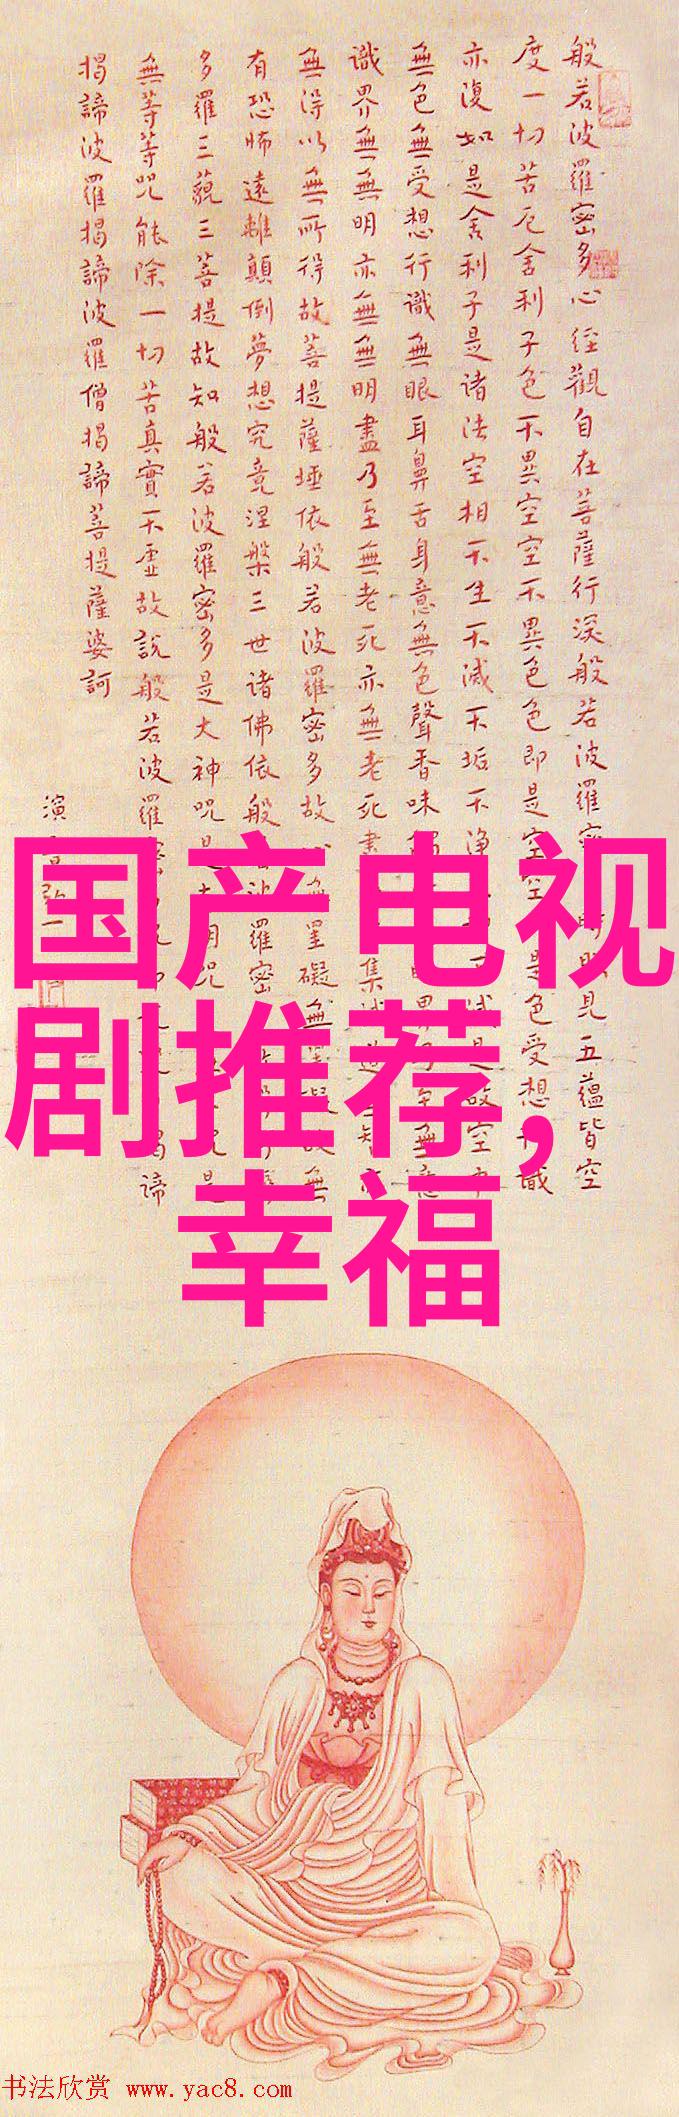 般若波羅密多心经觀自在菩薩行深般若波羅密時照見五蘊皆空
度一切苦厄舍利子色不異空空不異色色即是空空是色受想識
亦復如是舍利子是诸法空相不生不滅不垢不淨減是故空中
無色無受想行識無眼耳鼻舌身意無色聲香味眼界乃至無意
識界無無明亦無無明盡乃至無老死亦無老死盡集滅道無智亦
無得以無所得故菩提薩埵依般若波羅密多故心無罣礙無罣礙故無
有恐怖遠離顛倒夢想究竟涅槃三世诸佛依般波羅密
多羅三藐三菩提故知般若波羅密多是大神咒是大明咒是
無等等咒能除一切苦真實不虚故說般若波羅揭諦
揭諦波羅揭諦波羅僧揭諦菩提薩婆訶
演音弘一
国产电视
剧推荐，
幸福
书法欣赏 www.yac8.com